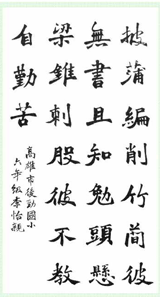 披蒲編削竹簡彼
無書且知勉頭懸
梁錐刺股彼不教
自勤苦
高雄市後勁國小
六年級李怡